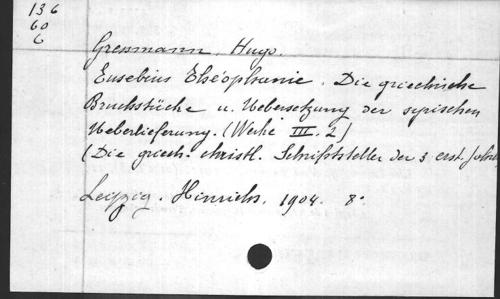 136
60
6
Gressmann, Hugo.
Eusebius Théophanie. Die griechische
Bruchstücke u. Uebersetzung der syrischen
Ueberlieferung. (Werke III. 2)
(Die griech. christl. Schriftsteller der 3 erst. Jahrh.
Leipzig. Hinrichs, 1904. 8°.